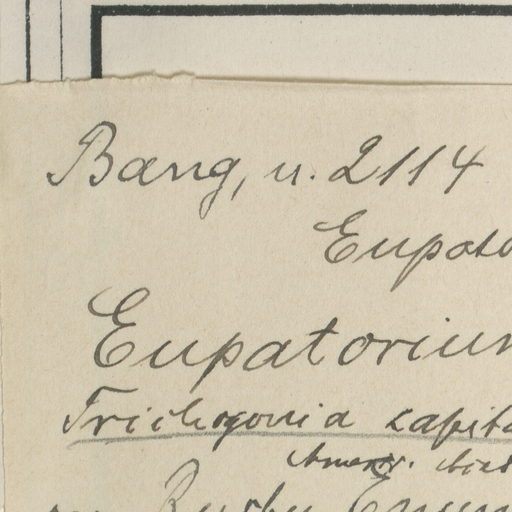 Bang, n. 2114
Eupato
Eupatorium
Trichogonia capita
Amer.
Rusby Enum